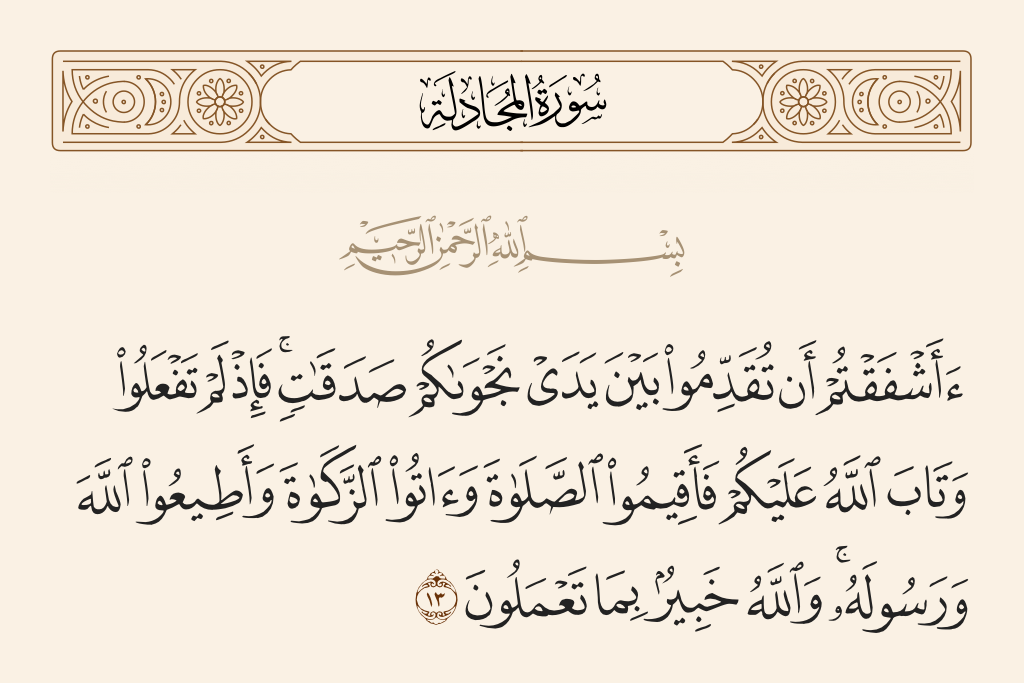 سُورَةُ المُجَادلَةِ
بِسْمِ ٱللَّهِ ٱلرَّحْمَٰنِ ٱلرَّحِيمِ
ءَأَشْفَقْتُمْ أَن تُقَدِّمُوا۟ بَيْنَ يَدَىْ نَجْوَىٰكُمْ صَدَقَٰتٍ ۚ فَإِذْ لَمْ تَفْعَلُوا۟
وَتَابَ ٱللَّهُ عَلَيْكُمْ فَأَقِيمُوا۟ ٱلصَّلَوٰةَ وَءَاتُوا۟ ٱلزَّكَوٰةَ وَأَطِيعُوا۟ ٱللَّهَ
وَرَسُولَهُۥ ۚ وَٱللَّهُ خَبِيرٌۢ بِمَا تَعْمَلُونَ ١٣